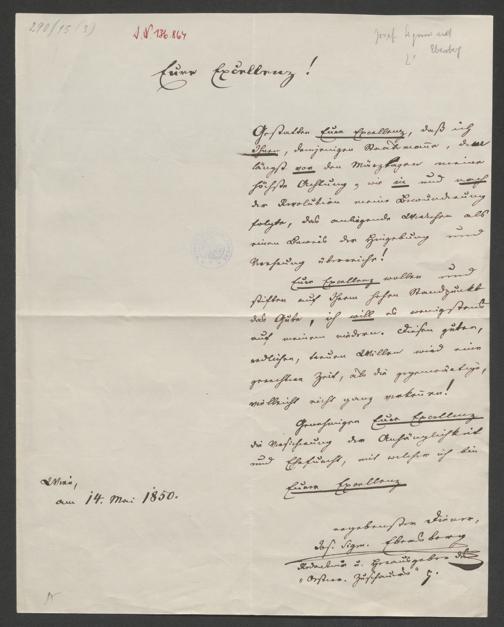 290/15 (3)
I.N 136.864
Josef Sigmund
Ebersberg
Eure Excellenz!
Gestatten Eure Excellenz, daß ich
Ihnen, demjenigen Staatsmanne, dem
längst vor den Märztagen meine
höchste Achtung, wie in und nach
der Revolution meine Bewunderung
folgte, das anliegende Werkchen als
einen Beweis der Hingebung und
Verehrung überreiche!
Eure Excellenz wollen und
stiften auf Ihrem hohen Standpunkt
das Gute, ich will es wenigstens
auf meinem niedern. Diesen guten,
redlichen, treuen Willen wird eine
gerechtere Zeit, als die gegenwärtige,
vielleicht nicht ganz verkennen!
Genehmigen Eure Excellenz
die Versicherung der Anhänglichkeit
und Ehrfurcht, mit welcher ich bin
Eurer Excellenz
Wien,
am 14. Mai 1850.
ergebenster Diener,
Jos. Sigm. Ebersberg
Redakteur u. Herausgeber des
"Oester. Zuschauers"